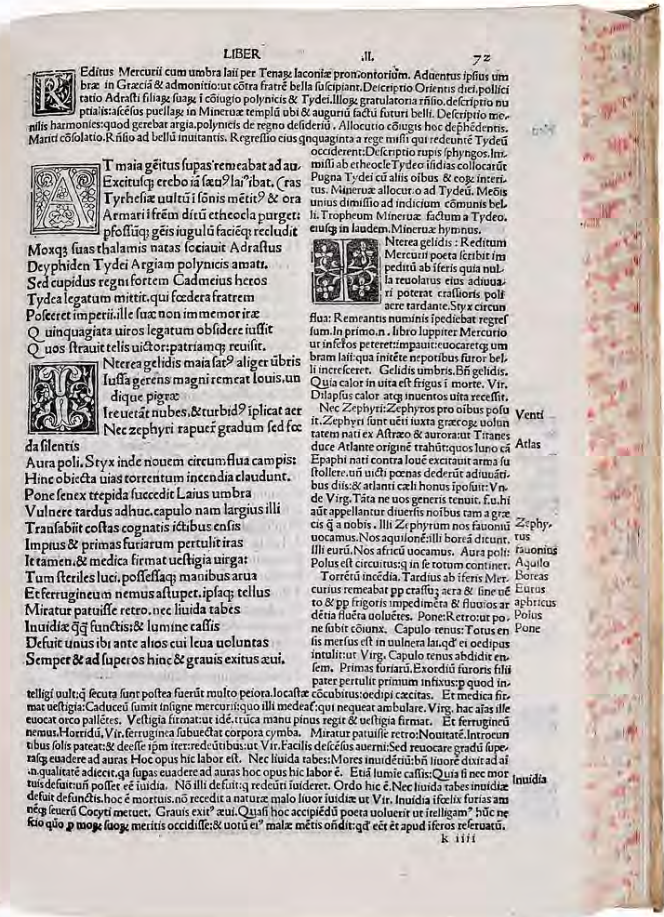 LIBER .II. 72
REditus Mercurii cum umbra laii per Tenaꝝ laconiæ promontorium. Aduentus ipsius um
bræ in Græciã & admonitio: ut cõtra fratrẽ bella suscipiant. Descriptio Orientis diei. pollici
tatio Adrasti filiaꝝ suaꝝ ĩ cõiugio polynicis & Tydei. Illoꝝ gratulatoria rñsio. descriptio nu
ptialis: ascẽsus puellaꝝ in Mineruæ templũ ubi & auguriũ factũ futuri belli. Descriptio mo.
nilis harmonies: quod gerebat argia. polynicis de regno desideriũ. Allocutio cõiugis hoc dephẽdentis.
Mariti cõsolatio. Rñsio ad bellũ inuitantis. Regressio eius qnquaginta a rege missi qui redeuntẽ Tydeũ
AT maia gẽitus supas remeabat ad au.
Excitusqꝫ erebo iã sæuꝰ laiꝰ ibat. (ras
Tyrhesiæ uultũ ĩ sõnis mẽtitꝰ & ora
Armari ĩ frẽm ditũ etheocla purget:
pfossũqꝫ gẽis iugulũ faciẽqꝫ recludit
Moxqꝫ suas thalamis natas sociauit Adrastus
Deyphiden Tydei Argiam polynicis amati.
Sed cupidus regni fortem Cadmeius heros
Tydea legatum mittit. qui fœdera fratrem
Posceret imperii. ille suæ non immemor iræ
Quinquagiata uiros legatum obsidere iussit
Quos strauit telis uictor: patriamqꝫ reuisit.
INterea gelidis maia satꝰ aliger ũbris
Iussa gerens magni remeat Iouis. un
dique pigræ
Ire uetãt nubes. & turbidꝰ ĩplicat aer
Nec zephyri rapuer̃ gradum sed fœ
da silentis
Aura poli. Styx inde nouem circumflua campis:
Hinc obiecta uias torrentum incendia claudunt.
Pone senex trepida succedit Laius umbra
Vulnere tardus adhuc. capulo nam largius illi
Transabiit costas cognatis ictibus ensis
Impius & primas furiarum pertulit iras
It tamen. & medica firmat uestigia uirga:
Tum steriles luci. possessaqꝫ manibus arua
Et ferrugineum nemus astupet. ipsaqꝫ tellus
Miratur patuisse retro. nec liuida tabes
Inuidiæ q̃q̃ functis: & lumine cassis
Defuit unus ibi ante alios cui leua uoluntas
Semper & ad superos hinc & grauis exitus æui.
occiderent: Descriptio rupis sphyngos. Ini.
missi ab etheocle Tydeo ĩsidias collocarũt
Pugna Tydei cũ aliis oibus & eoꝝ interi.
tus. Mineruæ allocut. o ad Tydeũ. Meõis
unius dimissio ad indicium cõmunis bel.
li. Tropheum Mineruæ factum a Tydeo.
eiusqꝫ in laudem. Mineruæ hymnus.
INterea gelidis: Reditum
Mercurii poeta scribit im
peditũ ab ĩferis quia nul.
la reuolatus eius adiuua.
ri poterat crassioris poli
aere tardante. Styx circun
flua: Remeantis numinis ĩpediebat regres
sum. In primo. n. libro Iuppiter Mercurio
ut infernos peteret: ĩmpauit: euocaretqꝫ um
bram laii: qua inimitẽte nepotibus furor bel.
li incresceret. Gelidis umbris. Bñ gelidis.
Quia calor in uita est frigus ĩ morte. Vir.
Dilapsus calor atqꝫ inuentos uita recessit.
Nec Zephyri: Zephyros pro oibus posu
it. Zephyri sunt uẽti iuxta græcoꝝ uolun
tatem nati ex Astræo & aurora: ut Titanes
duce Atlante originẽ trahũt: quos Iuno cã
Epaphi nati contra Iouẽ excitauit arma su
stollere. uñ uicti pœnas dederũt adiuuãti.
bus diis: & atlanti cæli honus ĩposuit: Vn.
de Virg. Tãta ne uos generis tenuit. f. u. hi
aũt appellantur diuersis noibus tam a græ
cis q̃ a nobis. Illi Zephyrum nos fauoniũ
uocamus. Nos aquilonẽ: illi boreã dicunt.
Illi eurũ. Nos africũ uocamus. Aura poli:
Polus est circuitus: q in se totum continet.
Torrẽtũ incẽdia. Tardius ab ĩferis Mer.
curius remeabat pp crassuꝫ aera & sine uẽ
to & pp frigoris impedimẽta & fluuios ar
dẽtia fluẽta uoluẽtes. Pone: Retro: ut po.
ne subit cõiunx. Capulo tenus: Totus en
sis mersus est in uulnera lai. qđ ei oedipus
intulit: ut Virg. Capulo tenus abdidit en.
sem. Primas furiarũ. Exordiũ furoris filii
pater pertulit primum infixus: p quod in.
telligi uult: q secuta sunt postea fuerũt multo peiora. Iocastæ cõcubitus: oedipi cæcitas. Et medica fir.
mat uestigia: Caduceũ sumit insigne mercurii: quo illi medeaf: qui nequeat ambulare. Virg. hac aĩas ille
euocat orco pallẽtes. Vestigia firmat: ut idẽ. trũca manu pinus regit & uestigia firmat. Et ferrugineũ
nemus. Horridũ, Vir. ferruginea subuectat corpora cymba. Miratur patuisse retro: Nouitatẽ. Introeun
tibus solis pateat: & deesse ipm iter: redeũtibus: ut Vir. Facilis descẽsus auerni: Sed reuocare gradũ supe.
rasqꝫ euadere ad auras Hoc opus hic labor est. Nec liuida tabes: Mores inuidẽtiũ: bñ liuorẽ dixit ad aĩ
.n. qualitatẽ adiecit. qa supas euadere ad auras hoc opus hic labor ẽ. Etiã lumine cassis: Quia si nec mor
tuis defuit: uñ posset eẽ iuidia. Nõ illi defuit: q redeũti iuideret. Ordo hic ẽ. Nec liuida tabes inuidiæ
defuit defunctis. hoc ẽ mortuis. nõ recedit a naturæ malo liuor iuidiæ ut Vir. Inuidia ĩfœlix furias am
nẽqꝫ seuerũ Cocyti metuet. Grauis exitꝰ æui. Quasi hoc accipiẽdũ poeta uoluerit ut ĩtelligamꝰ hũc ne
scio quo moꝝ suoꝝ meritis occidisse: & uotũ eiꝰ malæ mẽtis oñdit: qđ eẽt ẽt apud ĩferos reseruatũ.
k iiii
Venti
Atlas
Zephy.
rus
fauonius
Aquilo
Boreas
Eurus
aphricus
Polus
Pone
Inuidia